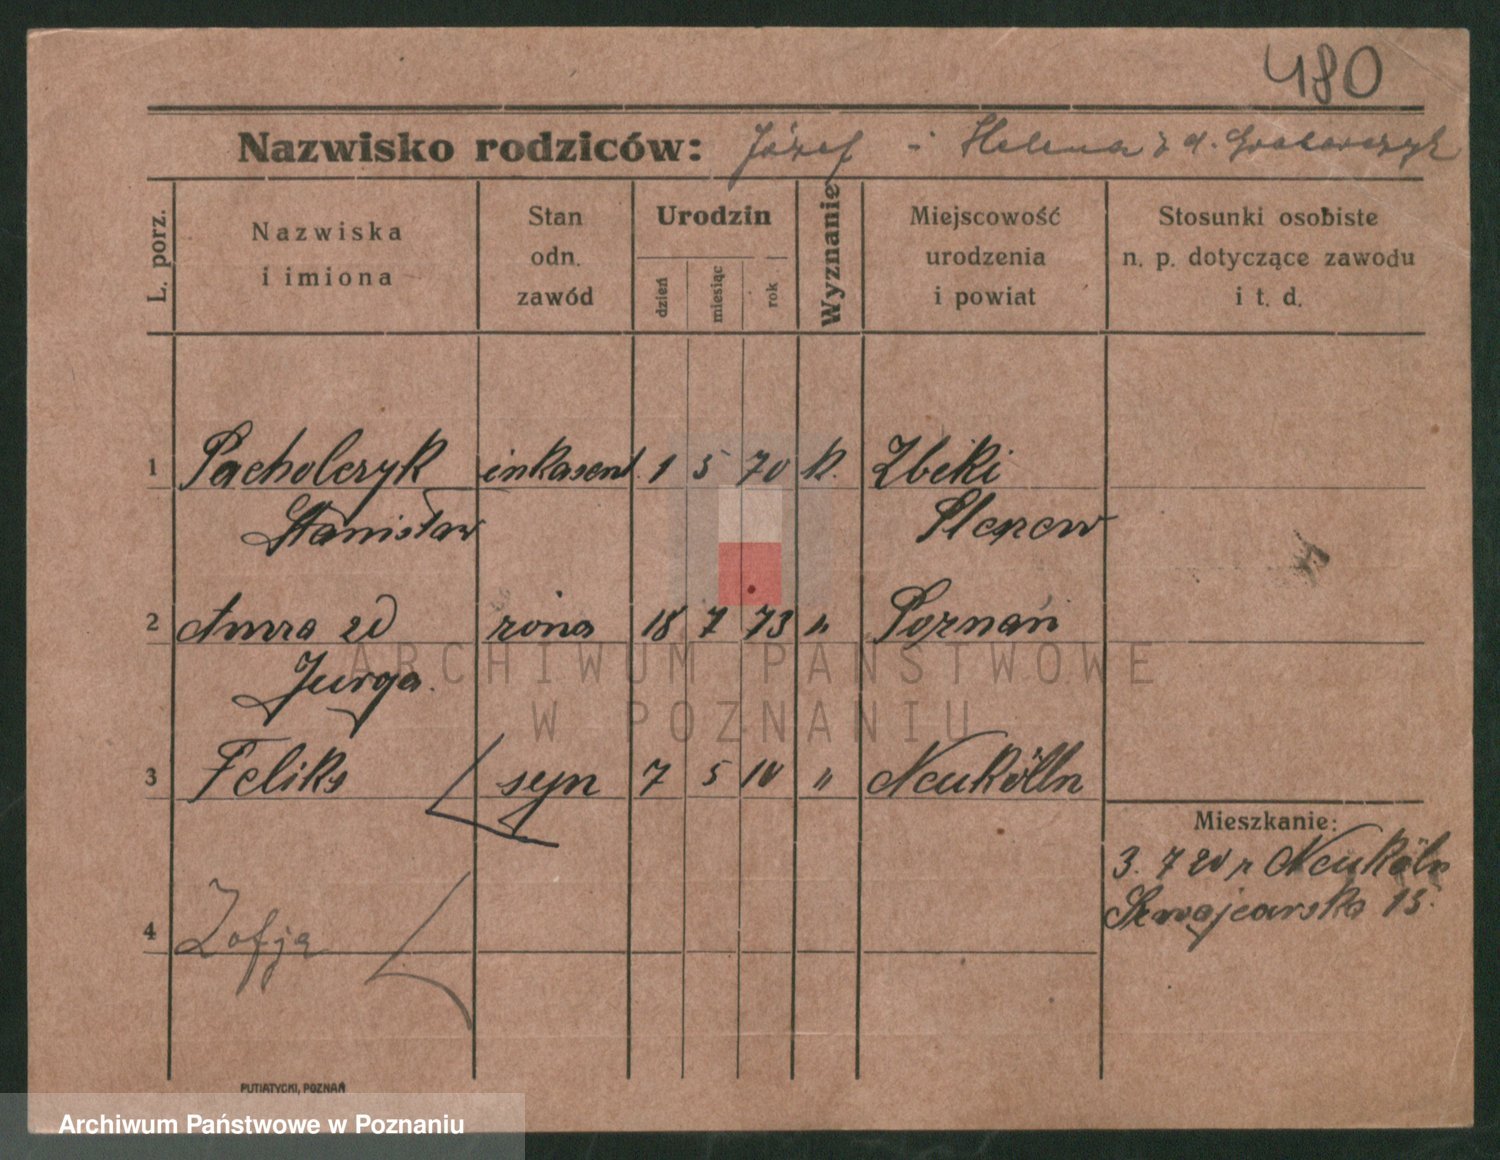 480
Nazwisko rodziców: Józef i Helena z d. Grabarczyk
L. porz.
Nazwiska i imiona
Stan odn. zawód
Urodzin
dzień
miesiąc
rok
Wyznanie
Miejscowość urodzenia i powiat
Stosunki osobiste n. p. dotyczące zawodu i t. d.
1 Pacholczyk inkasent 1 5 70 k. Zbeki
Stanisław
2 Anna zd żona 18 7 73 " Poznań
Jurga.
3 Feliks syn 7 5 10 " Neukölln
Mieszkanie:
3. 7 20 Neukölln
15.
4 Zofja
PUTIATYCKI, POZNAŃ
ARCHIWUM PAŃSTWOWE
W POZNANIU
Archiwum Państwowe w Poznaniu